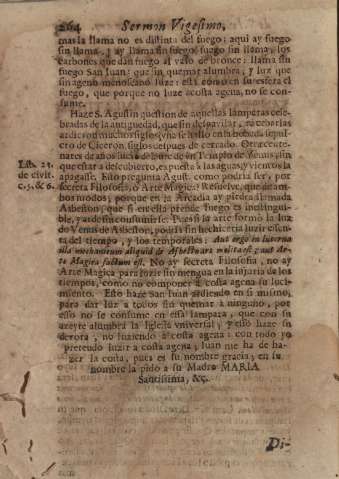 264 Sermon Vigesimo,
mas la llama no es distinta del fuego: aqui ay fuego
sin llama, y ay llama sin fuego, fuego sin llama, los
carbones que dan fuego al vaso de bronce: llama sin
fuego San Iuan, que sin quemar alumbra, y luz que
sin ageno menoscabo luze: està como en su esfera el
fuego, que porque no luze acosta agena, no se con-
sume.
Haze S. Agustin question de aquellas lamparas cele-
bradas de la antiguedad, que sin
ardieron muchos siglos, vna se hallò en la boveda sepul-
cro de Ciceron siglos despues de cerrado. Otra centena-
res de años luziò de luze en vn Templo de Venus, sin
que estar a descubierto, expuesta à las aguas, y vientos la
apagasse. Esto pregunta Agust. como podria ser, por
secreta Filosofia, ò Arte Magica? Resuelve, que de am-
bos modos; porque en la Arcadia ay piedra llamada
Asbeston, que si en ella prende fuego es inextingui-
ble, y arde sin consumirse. Pues si la arte formò la luz
do Venus de Asbeston, podria sin hechizeria luzir esen-
ta del tiempo, y los temporales: Aut ergo in lucerna
illa mechanicum aliquid de Asbesto ars molita est; aut Ar-
te Magica factum est. No ay secreta Filosofia, no ay
Arte Magica para luzir sin mengua en la injuria de los
tiempos, como no componer à costa agena su luci-
miento. Esto haze San Iuan ardiendo en si mismo,
para dar luz a todos sin quemar à ninguno, por
esso no se consume en essa lampara, que con su
azeyte alumbra la Iglesia vniversal; y esso haze sin
derora, no luziendo à costa agena: con todo yo
pretendo luzir a costa agena; Iuan me ha de ha-
zer la costa, pues es su nombre gracia, en su
nombre la pido a su Madre MARIA
Santissima, &c.
Lib. 21.
de civit.
c. 5. & 6.
Di-